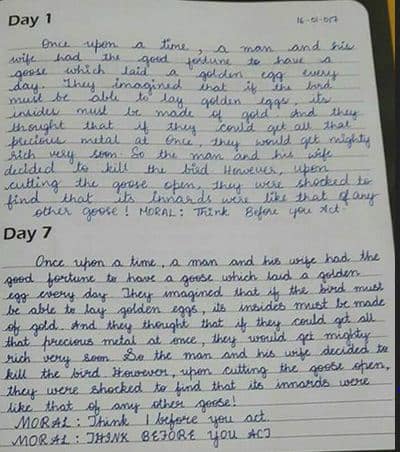 Day 1
16-01-017
Once upon a time, a man and his
wife had the good fortune to have a
goose which laid a golden egg every
day. They imagined that if the bird
must be able to lay golden eggs, its
insides must be made of gold. And they
thought that if they could get all that
precious metal at once, they would get mighty
rich very soon. So the man and his wife
decided to kill the bird However, upon
cutting the goose open, they were shocked to
find that its innards were like that of any
other goose! MORAL: Think Before you Act
Day 7
Once upon a time, a man and his wife had the
good fortune to have a goose which laid a golden
egg every day. They imagined that if the bird must
be able to lay golden eggs, its insides must be made
of gold. And they thought that if they could get all
that precious metal at once, they would get mighty
rich very soon So the man and his wife decided to
kill the bird However, upon cutting the goose open,
they were shocked to find that its innards were
like that of any other goose!
MORAL: Think before you act
MORAL: THINK BEFORE YOU ACT